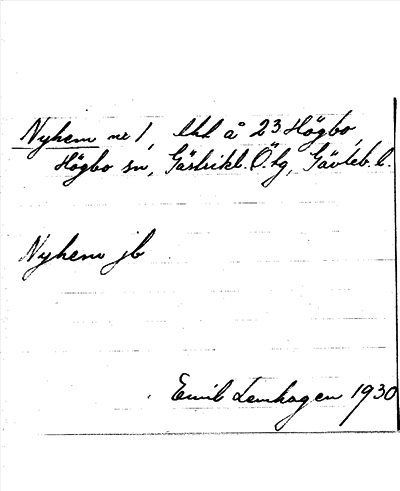 Nyhem nr 1, lhl å 23 Högbo,
Högbo sn, Gästrikl. Ö. tg, Gävleb. l.
Nyhem jb
Emil Lenhagen 1930